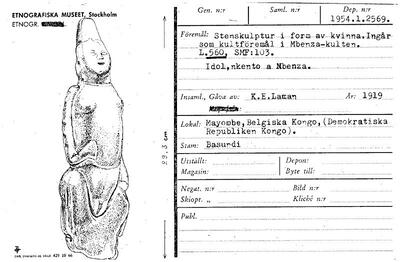 ETNOGRAFISKA MUSEET, Stockholm
ETNOGR.
29,3 cm
Gen. n:r
Saml. n:r
Dep. n:r
1954.1.2569.
Föremål: Stenskulptur i form av kvinna. Ingår
som kultföremål i Mbenza-kulten.
L.560, SMF:103.
Idol, nkento a Mbenza.
Insaml., Gåva av: K.E.Laman År: 1919
Lokal: Mayombe, Belgiska Kongo, (Demokratiska
Republiken Kongo).
Stam: Basundi
Utställt: Depon:
Magasin: Byte till:
Negat. n:r Bild n:r
Skiopt. „ Kliché n:r
Publ.